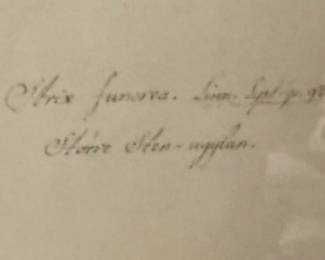 Strix funerea. Linn. Syst. p.
Större Sten-ugglan.